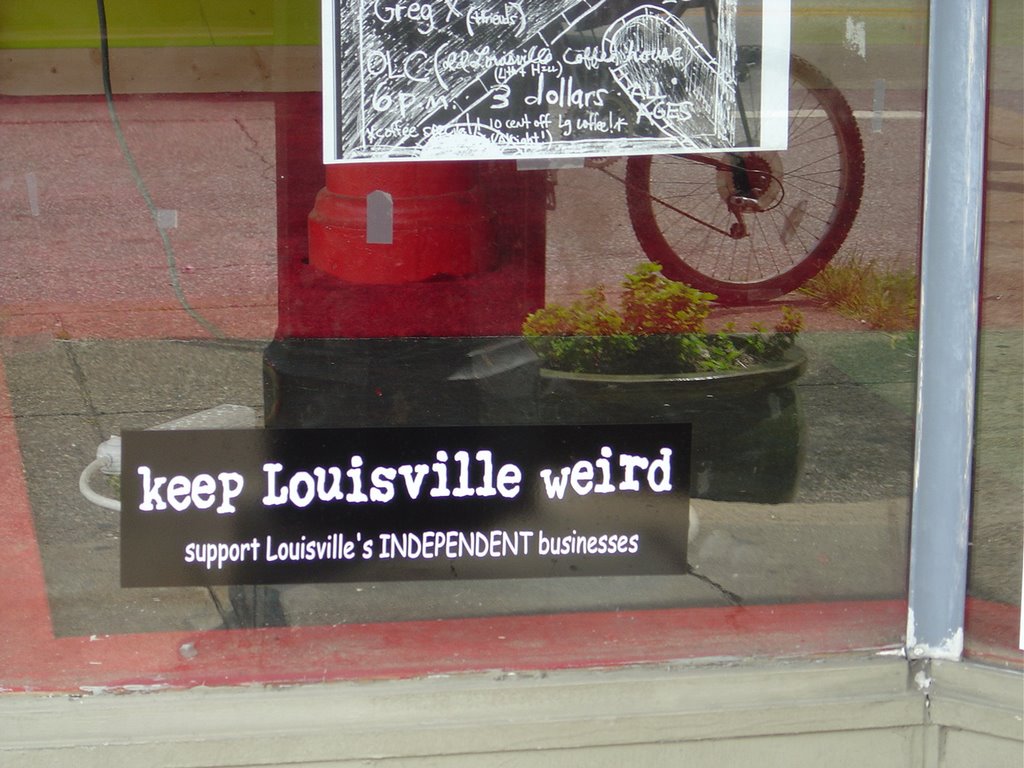 Greg X (+friends)
OLC (old Louisville Coffee house)
(4th + Hill)
6 p.m. 3 dollars ALL
AGES
*coffee special!! 10 cent off lg coffee!*
keep Louisville weird
support Louisville's INDEPENDENT businesses